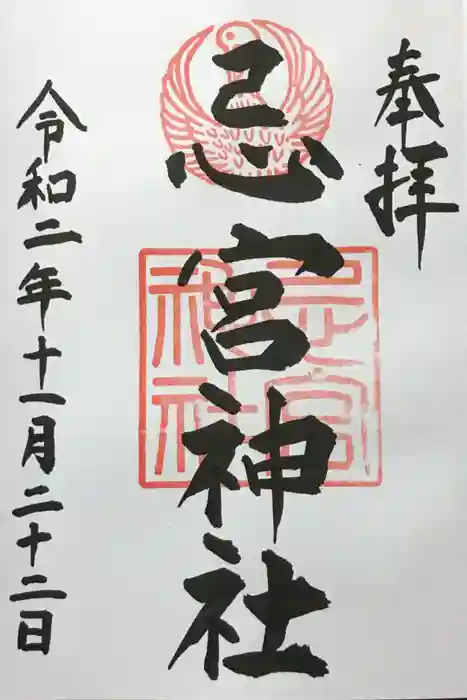 奉拝
忌宮神社
忌宮
神社
令和二年十一月二十二日